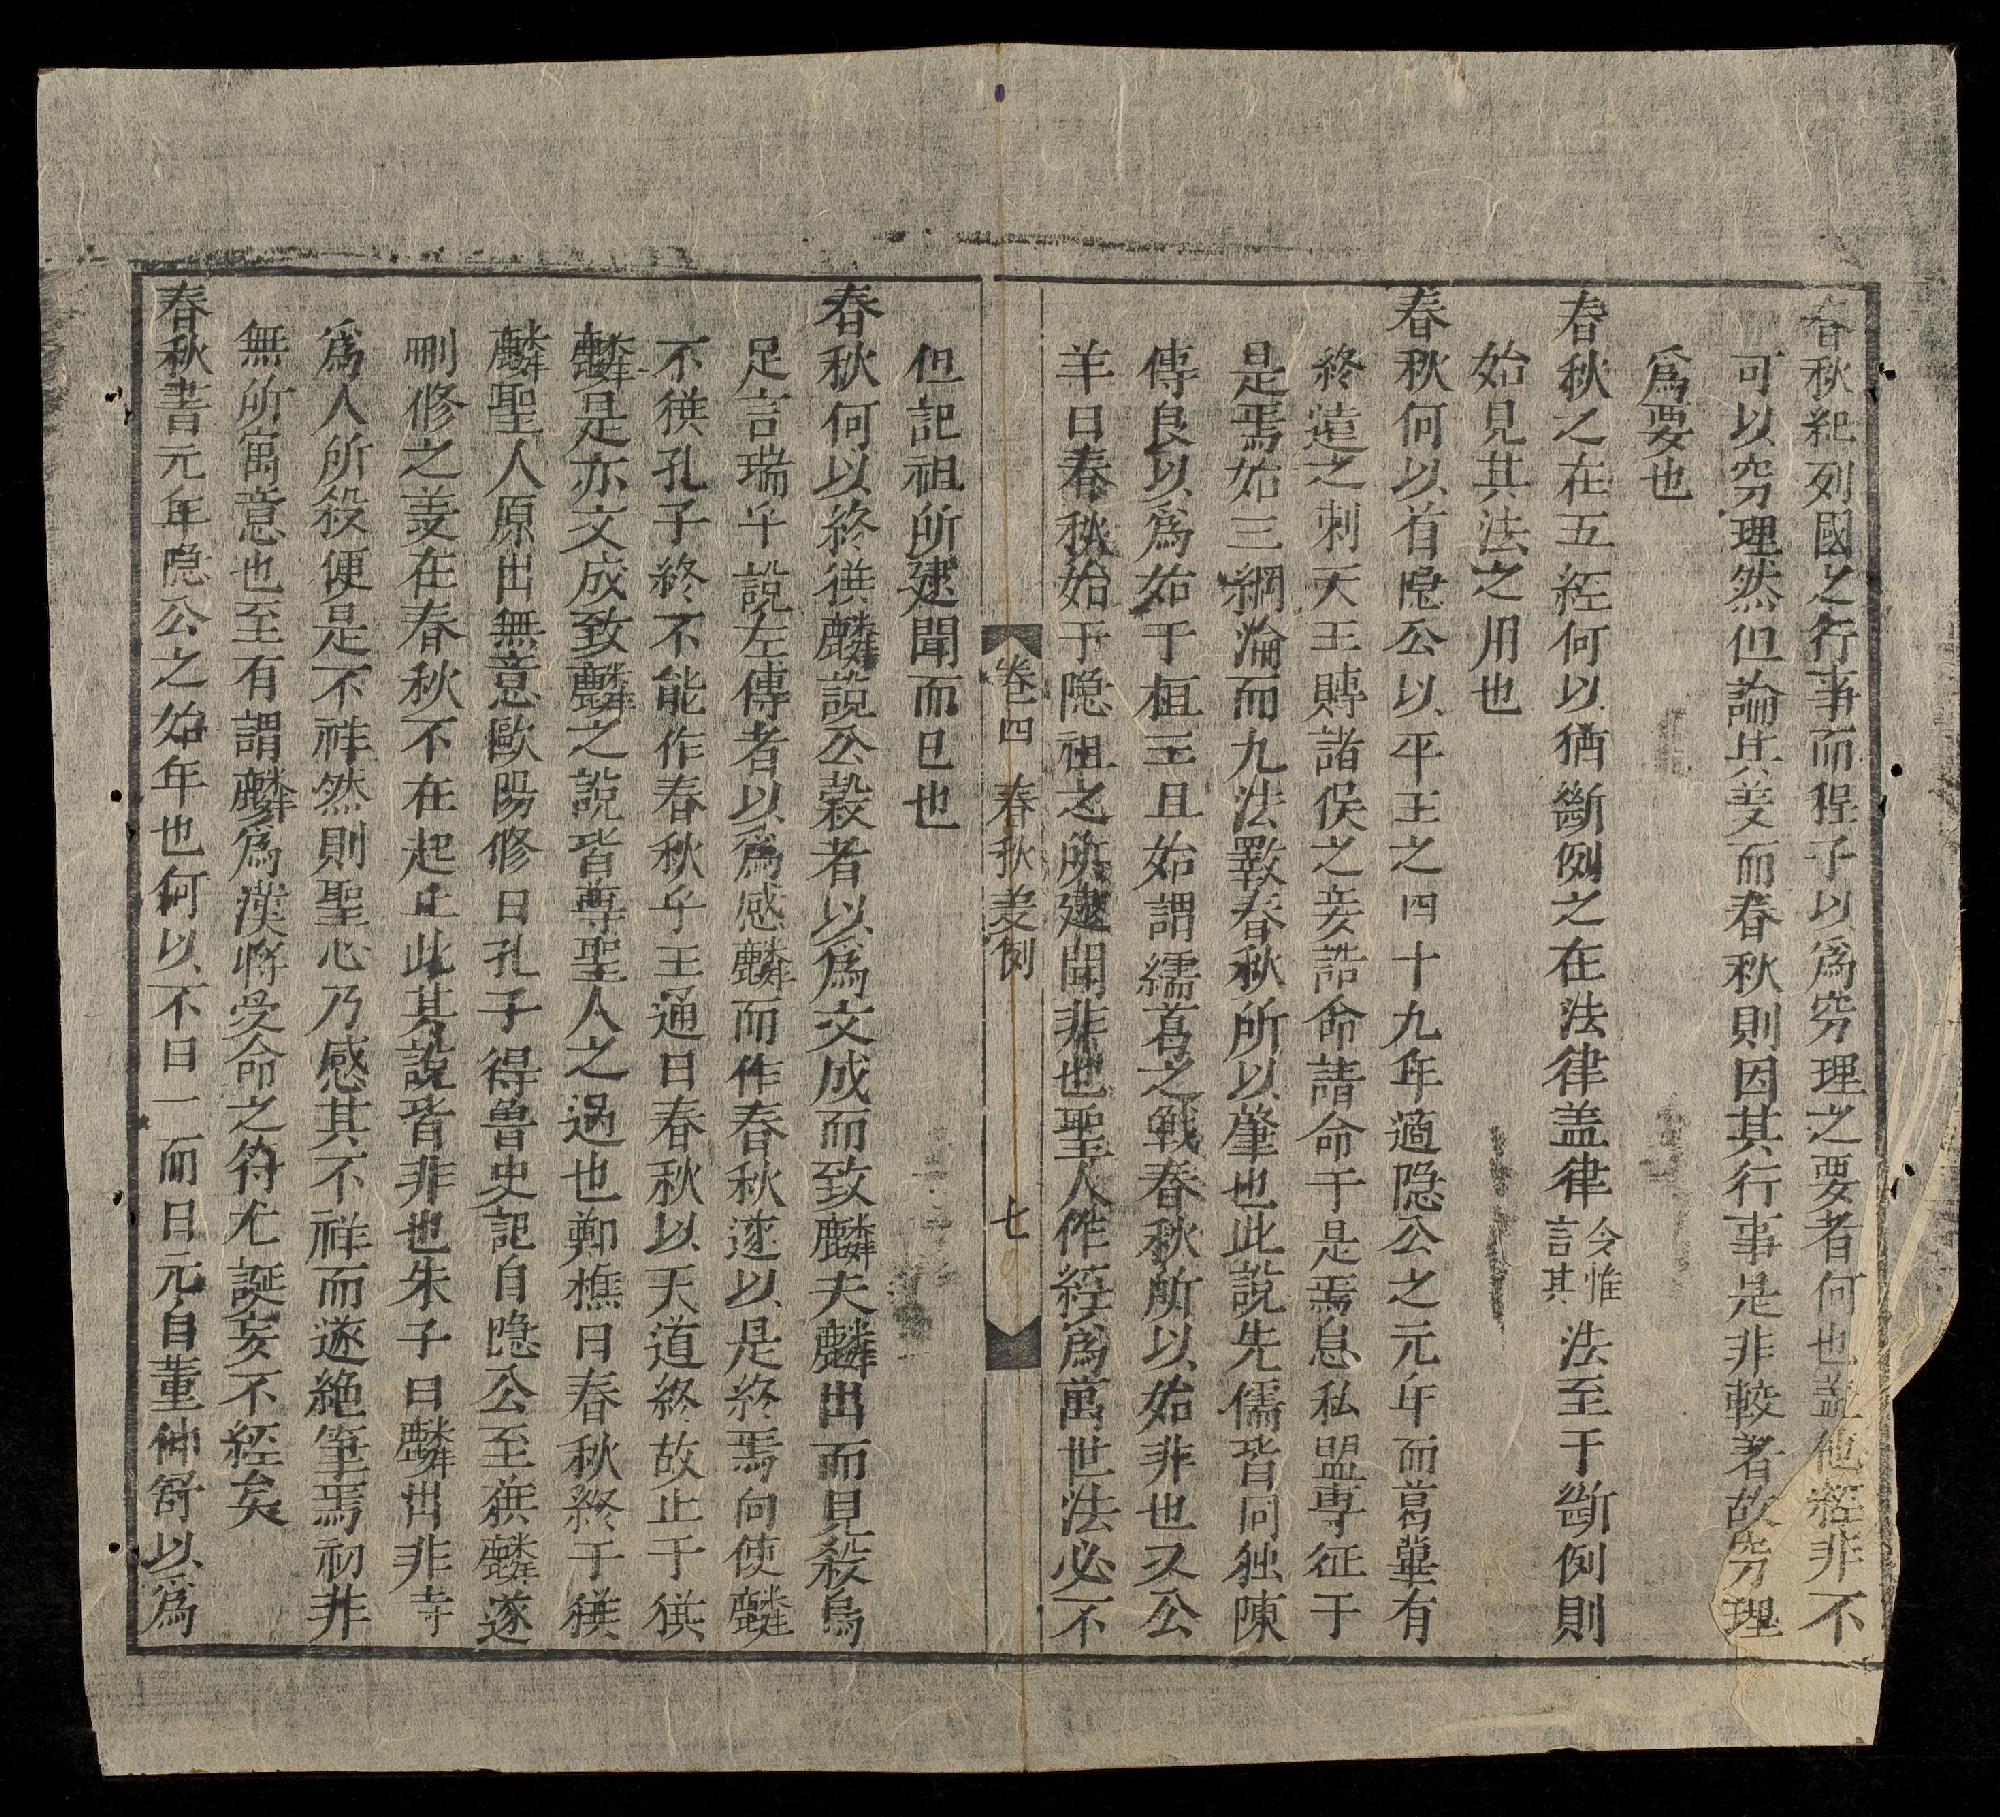 春秋紀列國之行事而程子以爲穷理之要者何也盖他経非不
可以穷理然但論其义而春秋則因其行事是非較著故穷理
爲要也
春秋之在五経何以猶斷例之在法律盖律令惟言其法至于斷例則
始見其法之用也
春秋何以首隠公以平王之四十九年適隠公之元年而葛藟有
終遠之刺天王賵諸侯之妾誥命請命于是焉息私盟専征于
是焉始三綱淪而九法斁春秋所以肇也此說先儒皆同独陳
傅良以爲始于桓王且始謂繻葛之戦春秋所以始非也又公
羊曰春秋始于隠祖之所逮聞非也聖人作経爲萬世法必不
卷四 春秋义例 七
但記祖所逮聞而已也
春秋何以終獲麟說公穀者以爲文成而致麟夫麟出而見殺烏
足言瑞乎說左傳者以爲感麟而作春秋遂以是終焉向使麟
不獲孔子終不能作春秋乎王通曰春秋以天道終故止于獲
麟是亦文成致麟之說皆尊聖人之過也鄭樵曰春秋終于獲
麟聖人原出無意歐陽修曰孔子得魯史記自隠公至獲麟遂
刪修之义在春秋不在起止此其說皆非也朱子曰麟出非寺
爲人所殺便是不祥然則聖心乃感其不祥而遂絶筆焉初非
無所寓意也至有謂麟爲漢將受命之符尤誕妄不経矣
春秋書元年隠公之始年也何以不曰一而曰元自董仲舒以爲